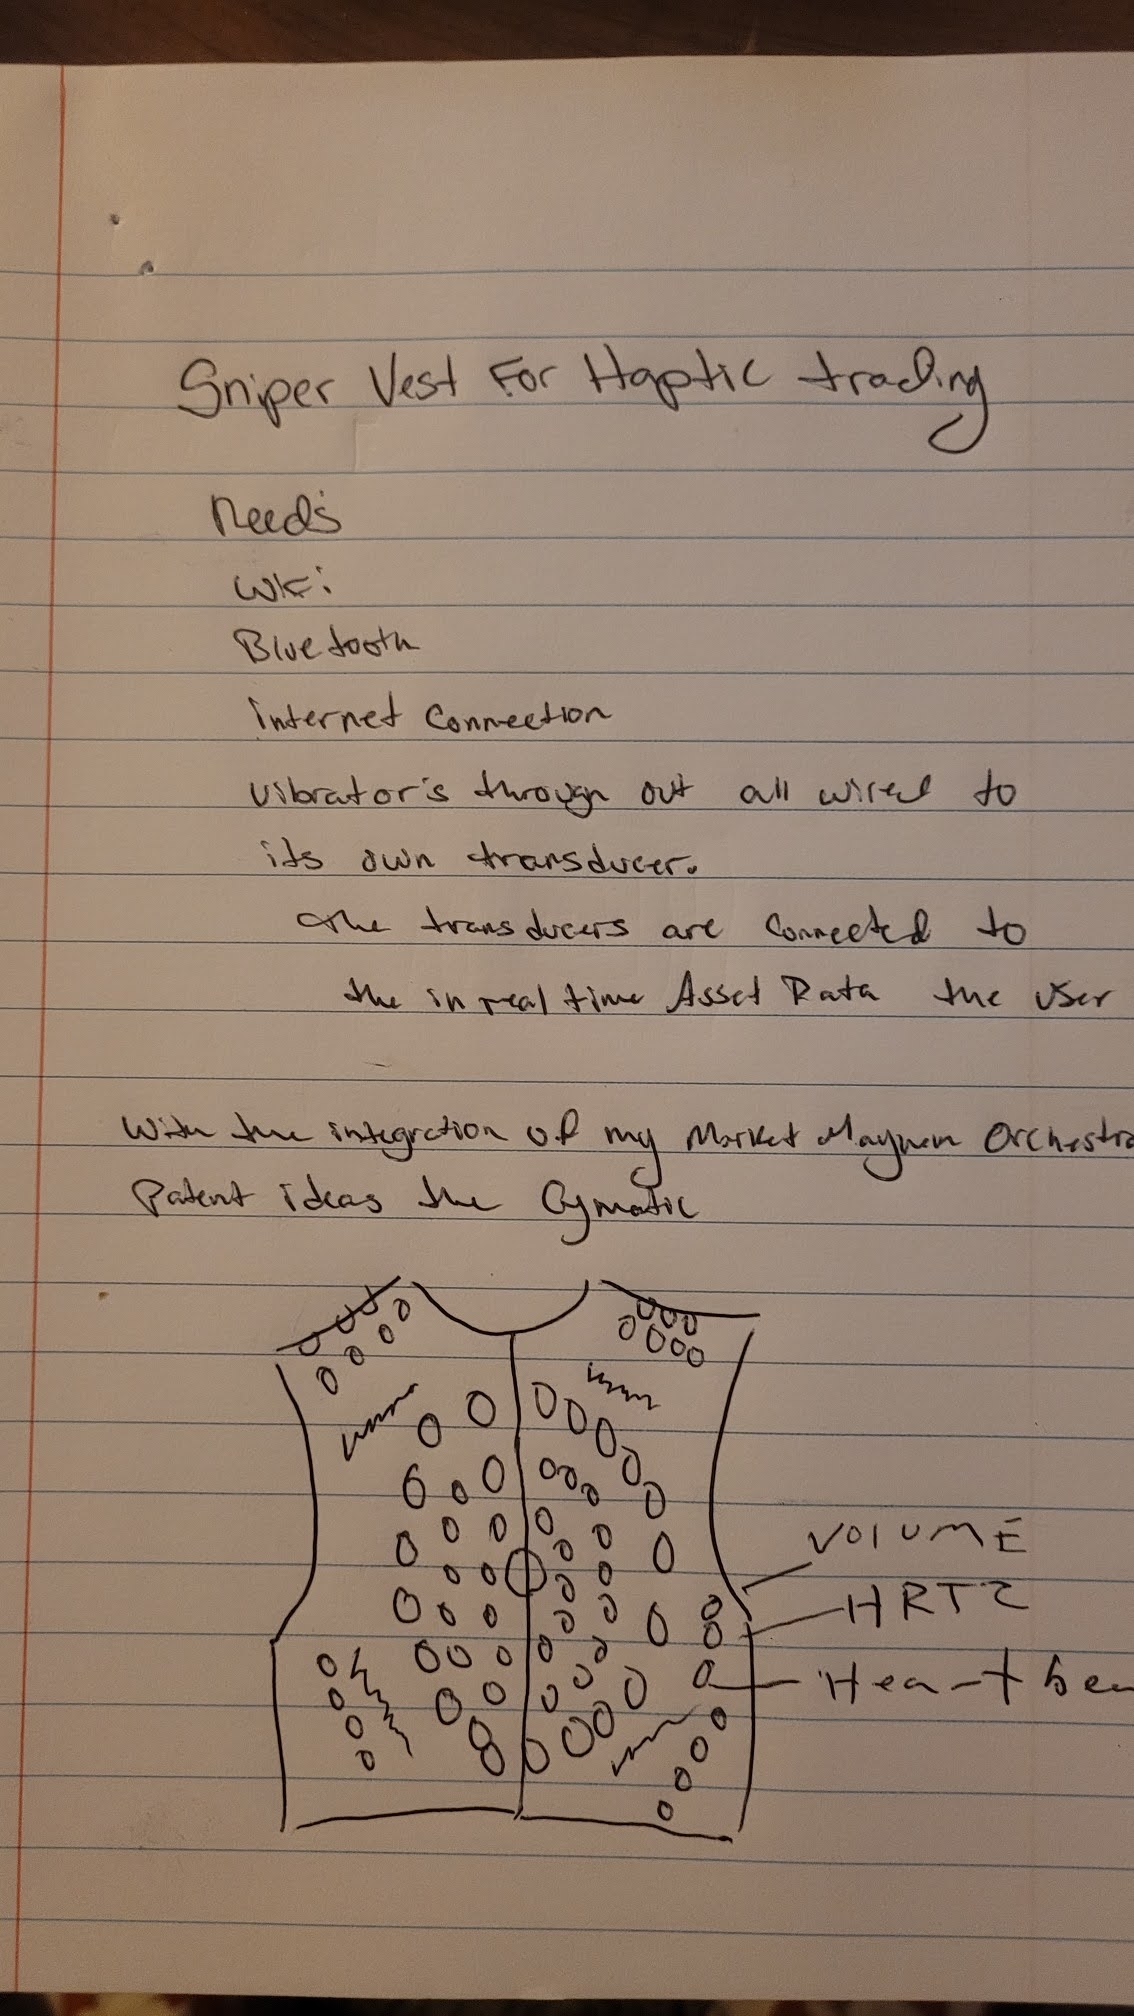 Sniper Vest For Haptic trading
Needs
Wifi
Bluetooth
internet Connection
Vibrator's through out all wired to
its own transducer.
the transducers are connected to
the in real time Asset Data the user
With the integration of my Market Orchestra
Patent ideas the Cymatic
VOLUME
HRTZ
Heart bea